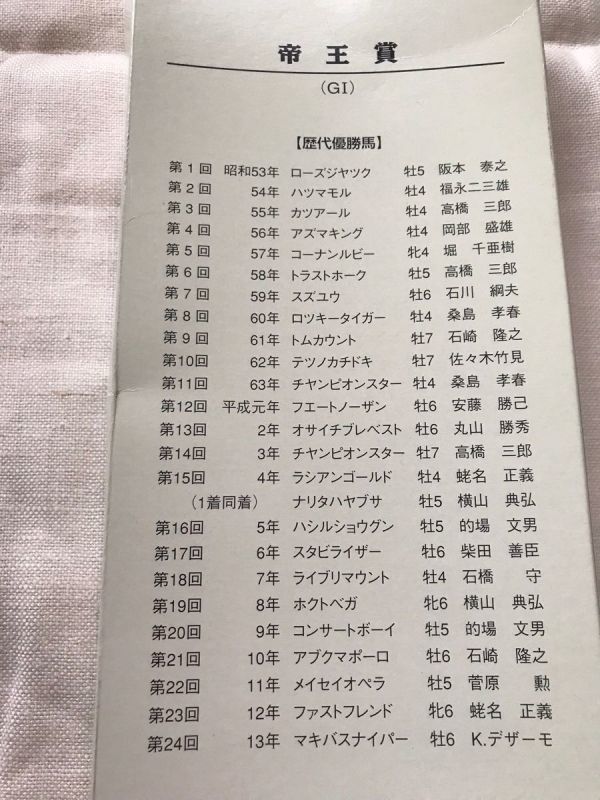 帝王賞
(GI)
【歴代優勝馬】
第1回 昭和53年 ローズジヤツク 牡5 阪本 泰之
第2回 54年 ハツマモル 牡4 福永二三雄
第3回 55年 カツアール 牡4 高橋 三郎
第4回 56年 アズマキング 牡4 岡部 盛雄
第5回 57年 コーナンルビー 牝4 堀 千亜樹
第6回 58年 トラストホーク 牡5 高橋 三郎
第7回 59年 スズユウ 牡6 石川 綱夫
第8回 60年 ロツキータイガー 牡4 桑島 孝春
第9回 61年 トムカウント 牡7 石崎 隆之
第10回 62年 テツノカチドキ 牡7 佐々木竹見
第11回 63年 チヤンピオンスター 牡4 桑島 孝春
第12回 平成元年 フエートノーザン 牡6 安藤 勝己
第13回 2年 オサイチブレベスト 牡6 丸山 勝秀
第14回 3年 チヤンピオンスター 牡7 高橋 三郎
第15回 4年 ラシアンゴールド 牡4 蛯名 正義
(1着同着) ナリタハヤブサ 牡5 横山 典弘
第16回 5年 ハシルショウグン 牡5 的場 文男
第17回 6年 スタビライザー 牡6 柴田 善臣
第18回 7年 ライブリマウント 牡4 石橋 守
第19回 8年 ホクトベガ 牝6 横山 典弘
第20回 9年 コンサートボーイ 牡5 的場 文男
第21回 10年 アブクマポーロ 牡6 石崎 隆之
第22回 11年 メイセイオペラ 牡5 菅原 勲
第23回 12年 ファストフレンド 牝6 蛯名 正義
第24回 13年 マキバスナイパー 牡6 K.デザーモ